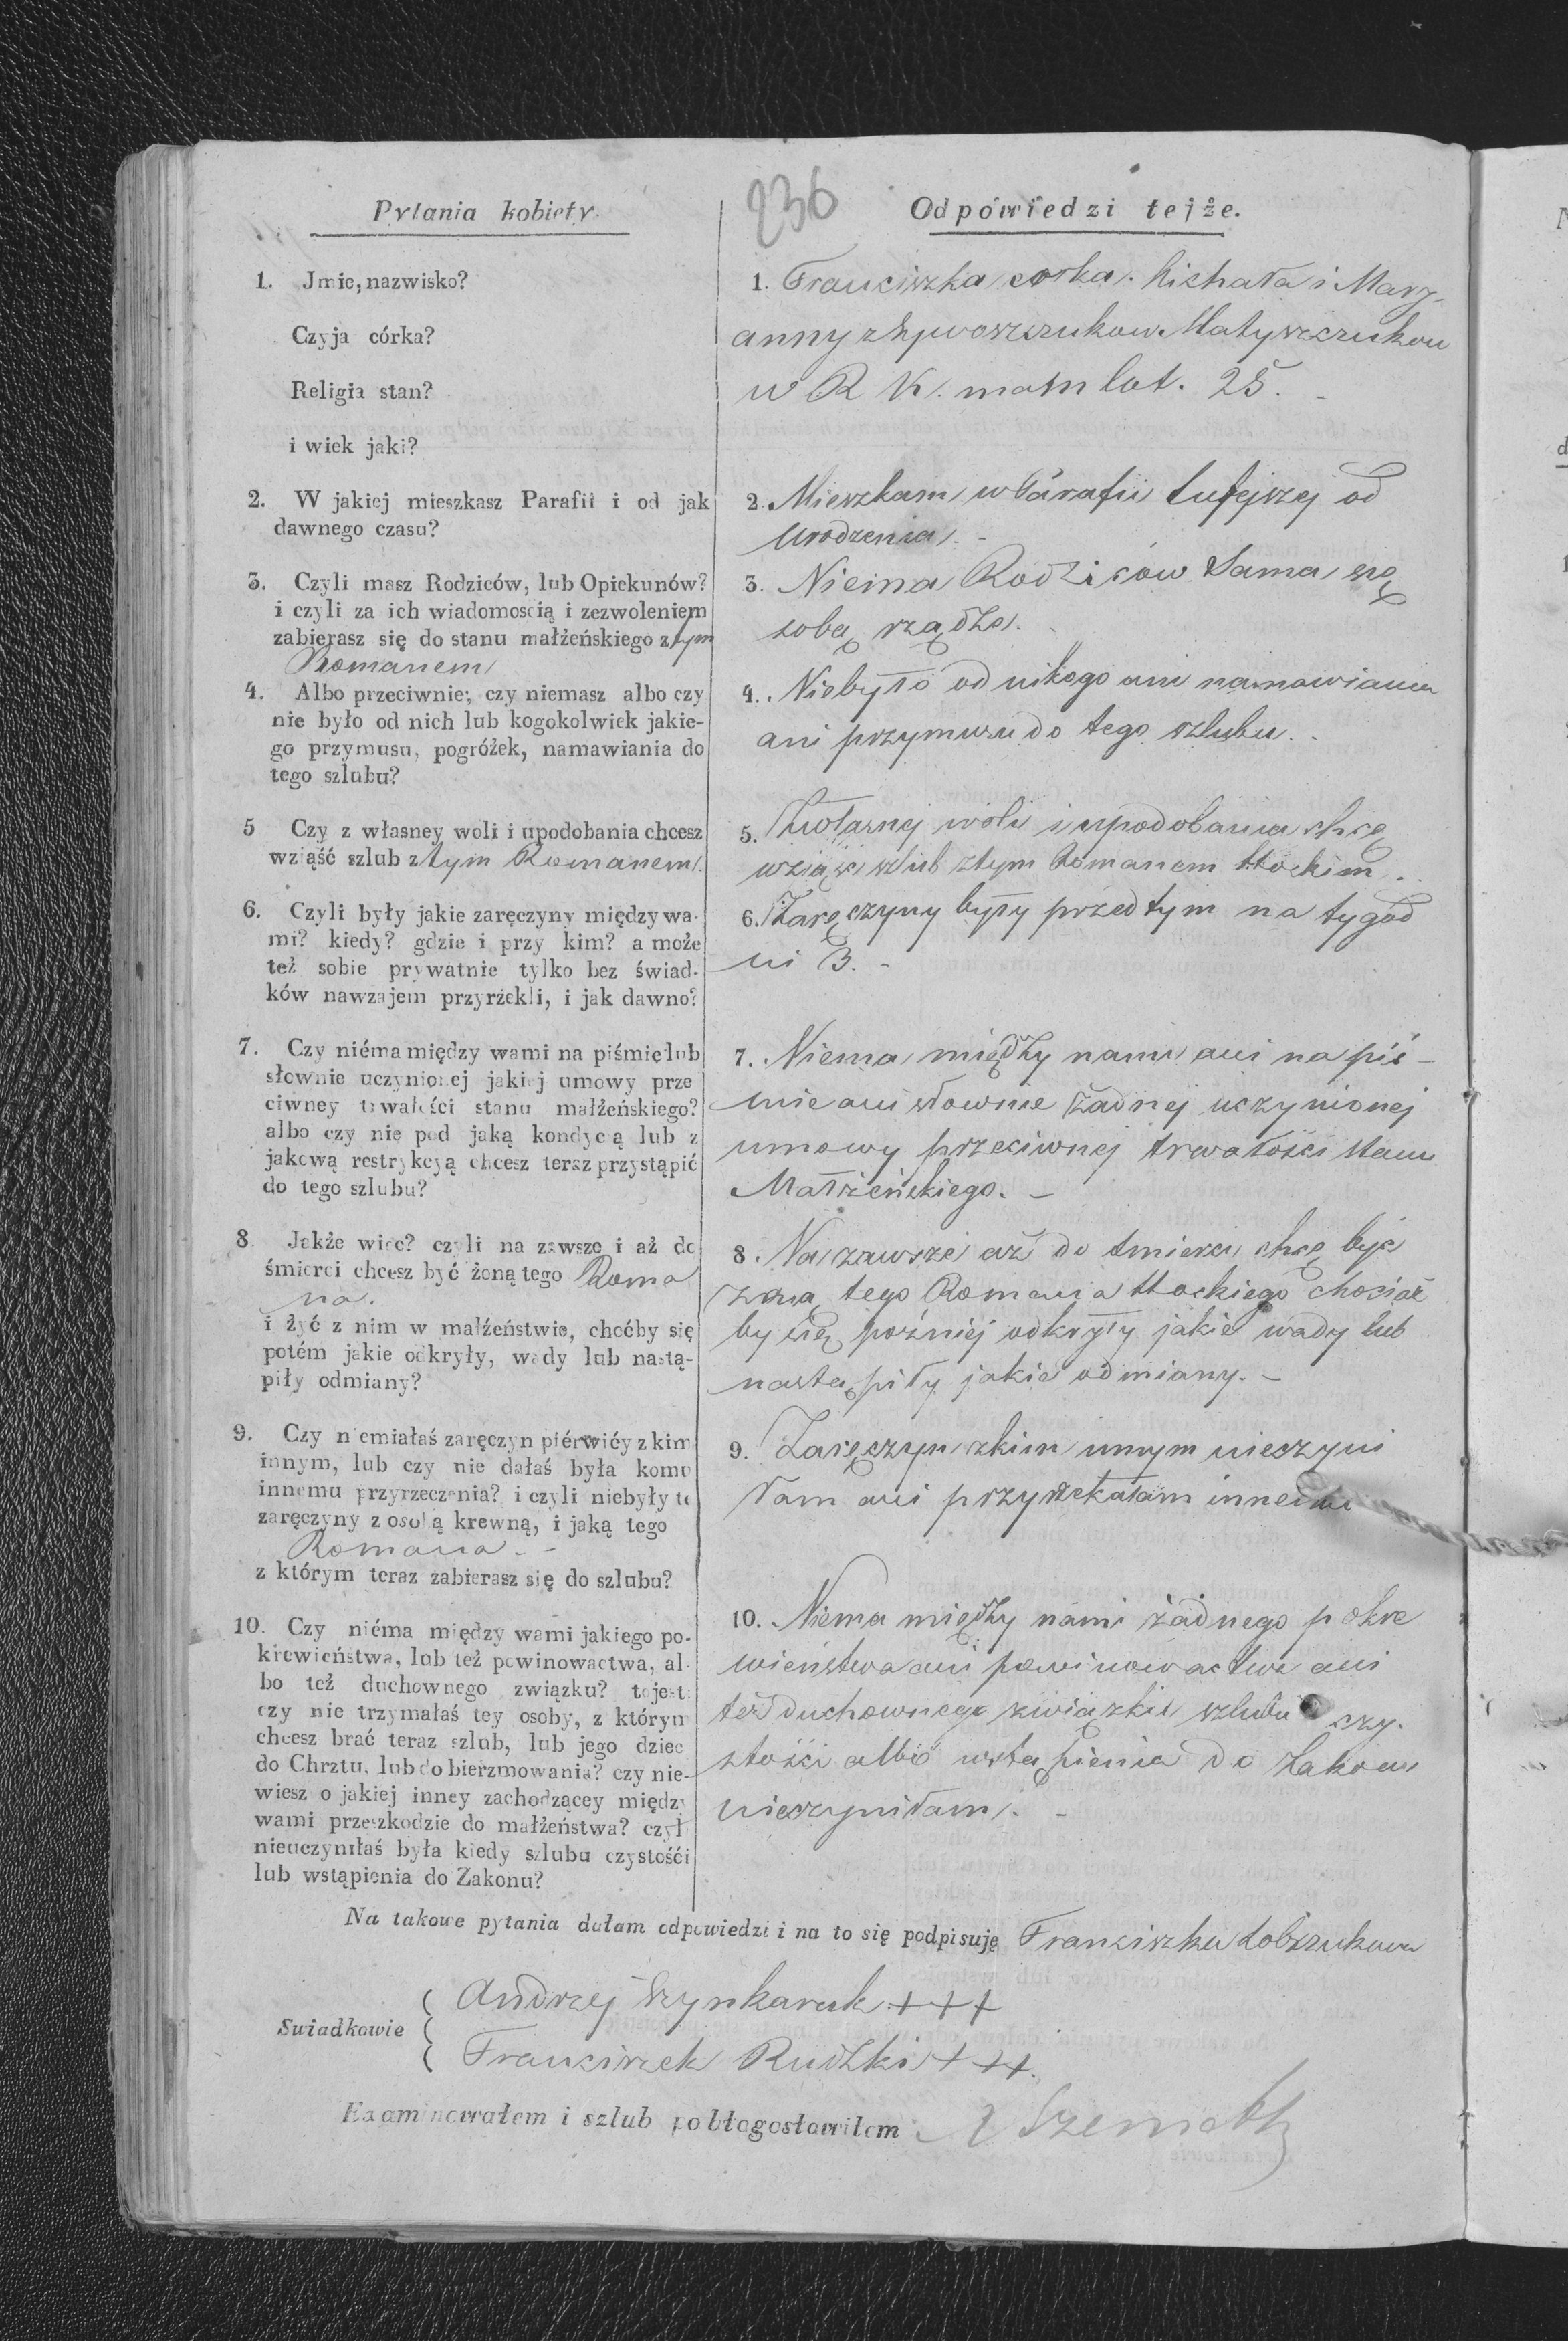 236
Pytania kobiety.
1. Jmie, nazwisko?
Czyja córka?
Religia stan?
i wiek jaki?
2. W jakiej mieszkasz Parafii i od jak
dawnego czasu?
3. Czyli masz Rodziców, lub Opiekunów?
i czyli za ich wiadomoscią i zezwoleniem
zabierasz się do stanu małżeńskiego z tym
Romanem
4. Albo przeciwnie; czy niemasz albo czy
nie było od nich lub kogokolwiek jakie-
go przymusu, pogróżek, namawiania do
tego szlubu?
5 Czy z własney woli i upodobania chcesz
wziąść szlub z tym Romanem.
6. Czyli były jakie zaręczyny między wa-
mi? kiedy? gdzie i przy kim? a może
też sobie prywatnie tylko bez świad-
ków nawzajem przyrzekli, i jak dawno?
7. Czy niéma między wami na piśmie lub
słownie uczynionej jakiej umowy prze
ciwney trwałości stanu małżeńskiego?
albo czy nie pod jaką kondycą lub z
jakową restrykcyą chcesz teraz przystąpić
do tego szlubu?
8. Jakże wiec? czyli na zawsze i aż do
śmierci chcesz być żoną tego Roma
na.
i żyć z nim w małżeństwie, choćby się
potém jakie odkryły, wady lub nastą-
piły odmiany?
9. Czy niemiałaś zaręczyn piérwiéy z kim
innym, lub czy nie dałaś była komu
innemu przyrzeczenia? i czyli niebyły te
zaręczyny z osobą krewną, i jaką tego
Romana. -
z którym teraz zabierasz się do szlubu?
10. Czy niéma między wami jakiego po-
krewieństwa, lub też powinowactwa, al-
bo też duchownego związku? to jest:
czy nie trzymałaś tey osoby, z którym
chcesz brać teraz szlub, lub jego dziec
do Chrztu, lub do bierzmowania? czy nie-
wiesz o jakiej inney zachodzącey między
wami przeszkodzie do małżeństwa? czyli
nieuczyniłaś była kiedy szlubu czystośći
lub wstąpienia do Zakonu?
Odpowiedzi tejże.
1. Franciszka corka Michała i Mary-
anny Matyszczukow
w R K. mam lat. 25. -
2. Mieszkam w Parafii tutejszej od
urodzenia. -
3. Niema Rodziców Sama się
sobą rządze.
4. Niebyło od nikogo ani namawiania
ani przymusu do tego szlubu. -
5. Zwłasnej woli i upodobania chcę
wziąść szlub ztym Romanem
6. Zaręczyny były przed tym na tygod
ni 3. -
7. Niema między nami ani na piś-
mie ani słownie żadnej uczynionej
umowy przeciwnej trwałości stanu
Małżeńskiego. -
8. Na zawsze aż do śmierci chcę być
żoną tego Romana chociaż
by się poźniej odkryły jakie wady lub
nastąpiły jakie odmiany. -
9. Zaręczyn zkim innym nieczyni
łam ani przyrzekałam innemu
10. Niema między nami żadnego pokre
wieństwa ani powinowactwa ani
też duchownego związku szlubu czy-
stości albo wstąpienia do Zakonu
nieczyniłam. -
Na takowe pytania dałam odpowiedzi i na to się podpisuję Franciszka
Swiadkowie
Andrzej Szynkaruk +++
Franciszek Rudzki +++.
Examinowałem i szlub pobłogosławiłem